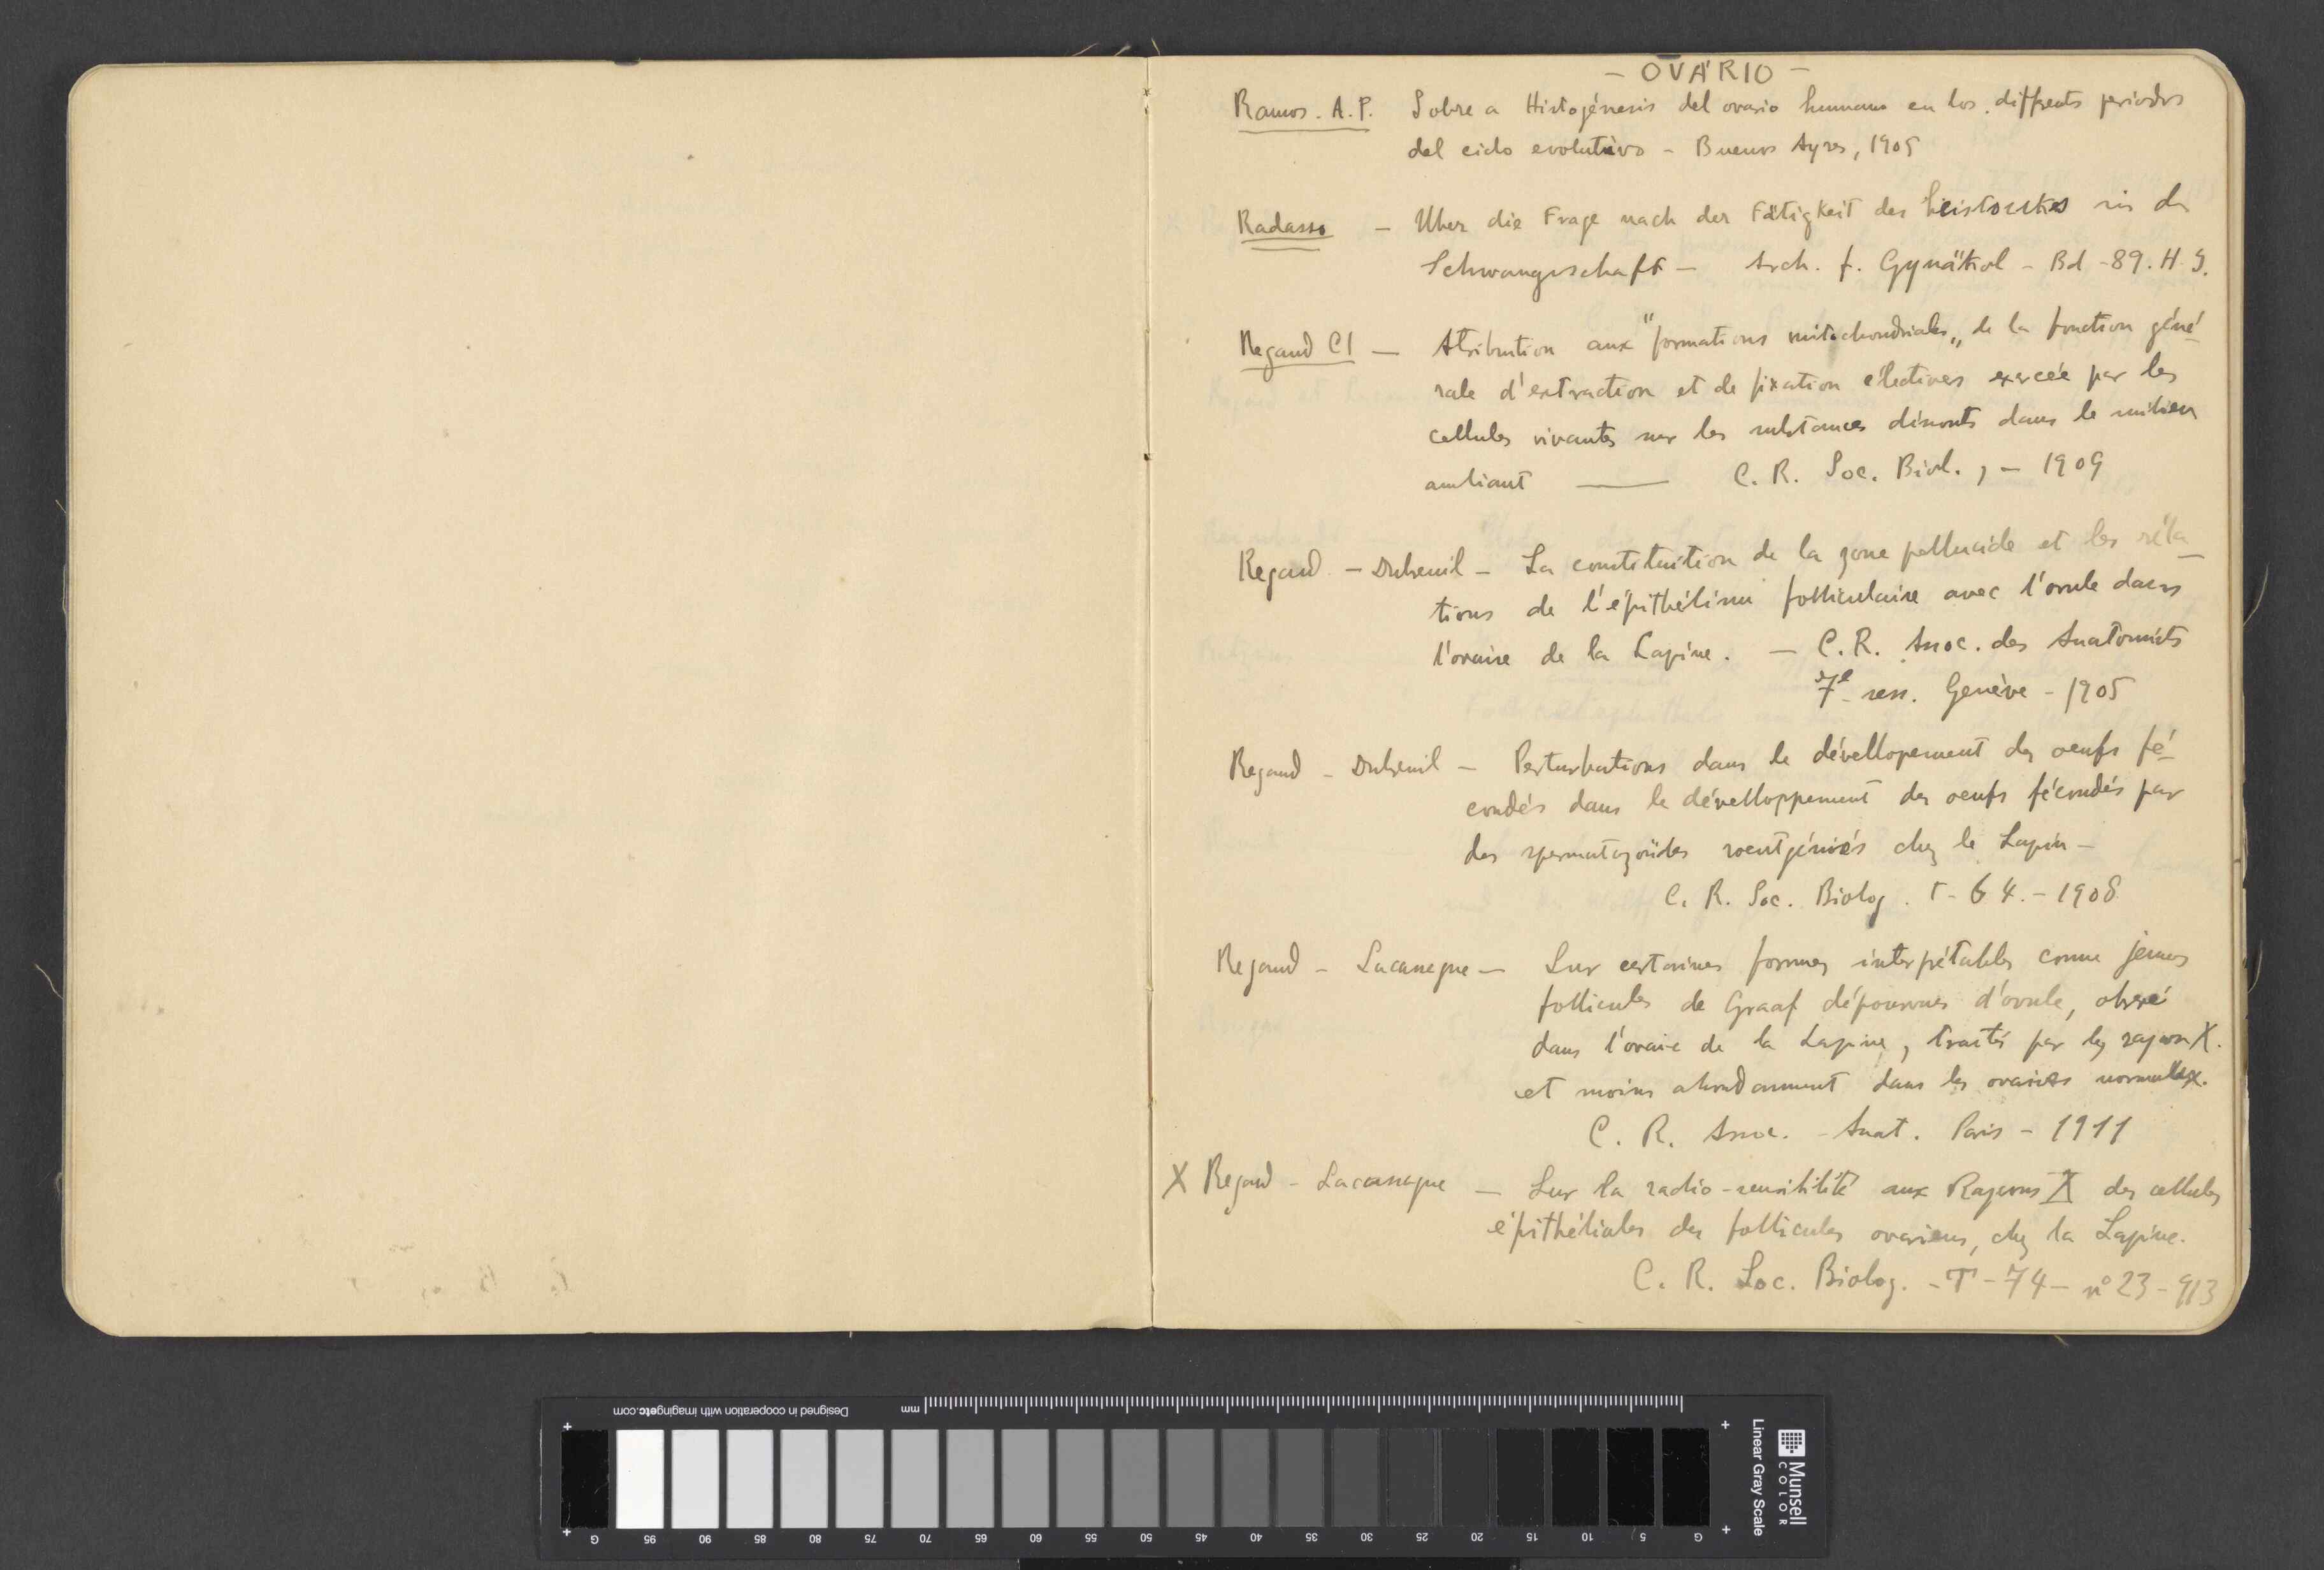 - OVÁRIO -
Ramos. A.P. Sobre a Histogénesis del ovario humano en los differents periodos
del ciclo evolutivo - Buenos Ayres, 1905
Radasso - Uber die Frage nach der Fätigkeit des in der
Schwangerschaft - Arch. f. Gynäkol - Bd - 89. H.
Regaud Cl - Atribution aux "formations mitochondriales„ de la fonction géné-
rale d'extraction et de fixation électives exercée par les
cellules vivantes sur les substances dissouts dans le milieu
ambiant — C. R. Soc. Biol., - 1909
Regaud - Dubreuil - La constituition de la zone pellucide et les réla-
tions de l'épithélium folliculaire avec l'ovule dans
l'ovaire de la Lapine. - C.R. Assoc. des Anatomists
7e sess. Genève - 1905
Regaud - Dubreuil - Perturbations dans le dévellopement des oeufs fé-
condés dans le dévelloppement des oeufs fécondés par
des spermatozoïdes roentgénisés chez le Lapin -
C. R. Soc. Biolog. T- 64. - 1908
Regaud - Lacassagne - Sur certaines formes interprétables comme jeunes
follicules de Graaf dépourvues d'ovule, obsevé
dans l'ovaire de la Lapine, traités par les rayons X.
et moins abondamment dans les ovaires normaux.
C. R. Assoc. - Anat. Paris - 1911
X Regaud - Lacassagne - Sur la radio-sensibilité aux Rayons X des cellules
épithéliales des follicules ovariens, chez la Lapine.
C. R. Soc. Biolog. - T - 74 - nº 23 - 913
Designed in cooperation with imagingetc.com
mm
Munsell
COLOR
Linear Gray Scale
G 95 90 85 80 75 70 65 60 55 50 45 40 35 30 25 20 15 10 5 G